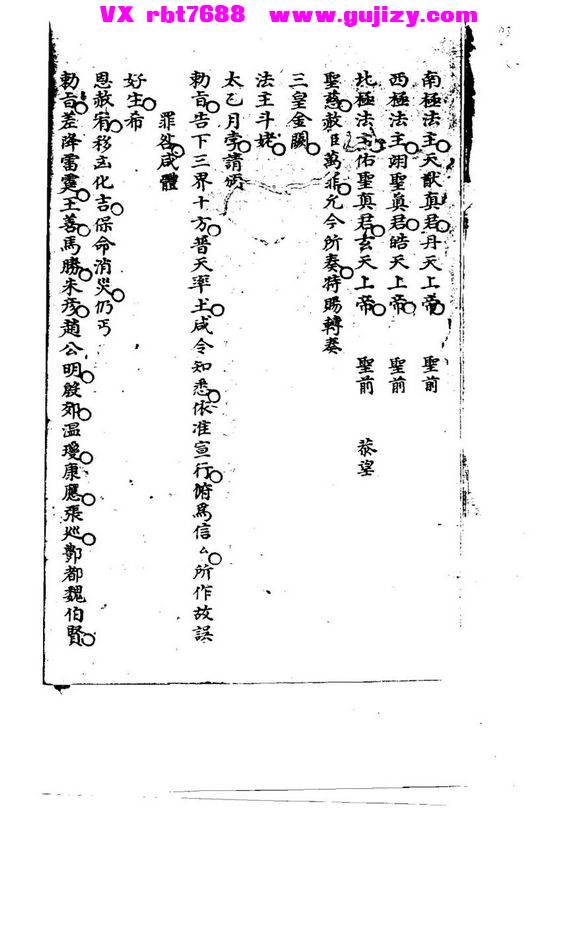 VX rbt7688 www.gujizy.com
南極法主天猷真君丹天上帝 聖前
西極法主翊聖真君皓天上帝 聖前
北極法主佑聖真君玄天上帝 聖前 恭望
聖慈赦臣萬罪允今所奏特賜轉奏
三皇金闕
法主斗姥
太乙月孛請頒
勅旨告下三界十方普天率土咸令知悉依准宣行俯爲信厶所作故誤
罪咎咸體
好生希
恩赦宥移凶化吉保命消災仍丐
勅旨差降雷霆王善馬勝朱彦趙公明殷郊温瓊康應張巡酆都魏伯賢